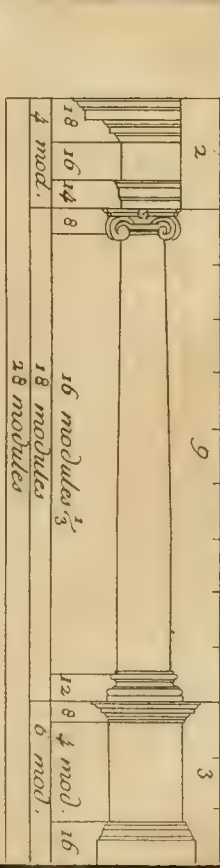 2 9 3
18 16 14 8 16 modules 1/3 12 8 4 mod. 16
4 mod. 18 modules 6 mod.
28 modules